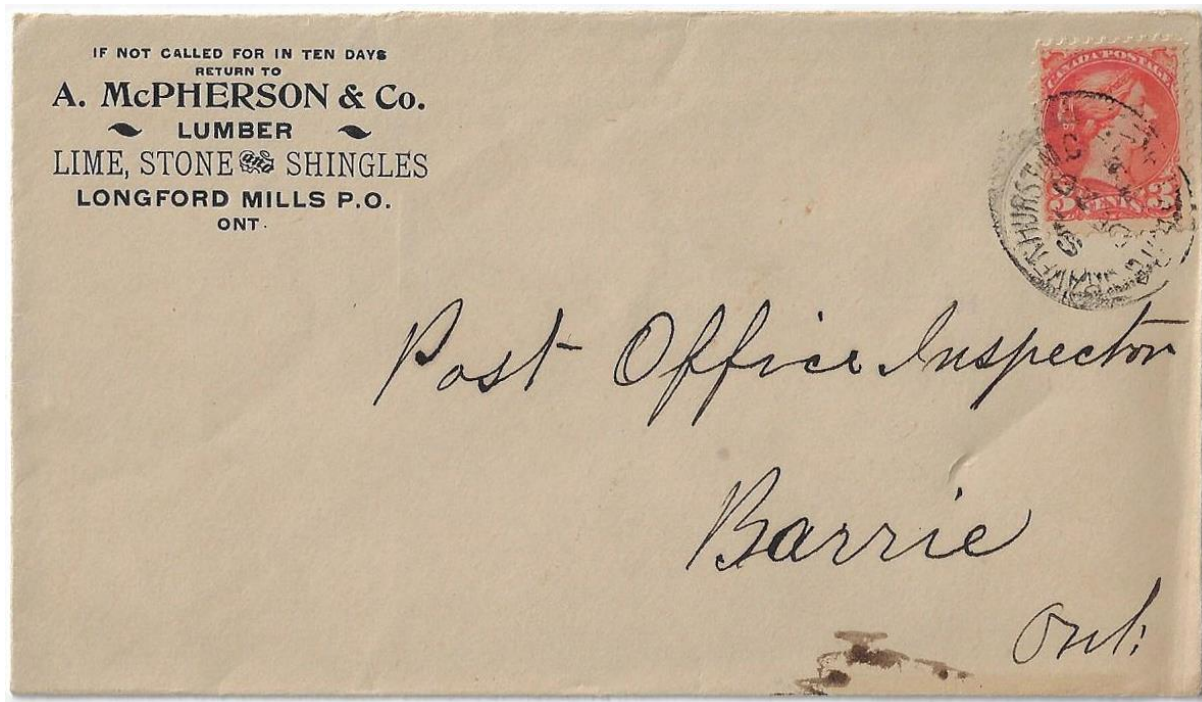 IF NOT CALLED FOR IN TEN DAYS
RETURN TO
A. McPHERSON & Co.
LUMBER
LIME, STONE and SHINGLES
LONGFORD MILLS P.O.
ONT.
CANADA POSTAGE
3 CENTS 3
Post Office Inspector
Barrie
Ont.